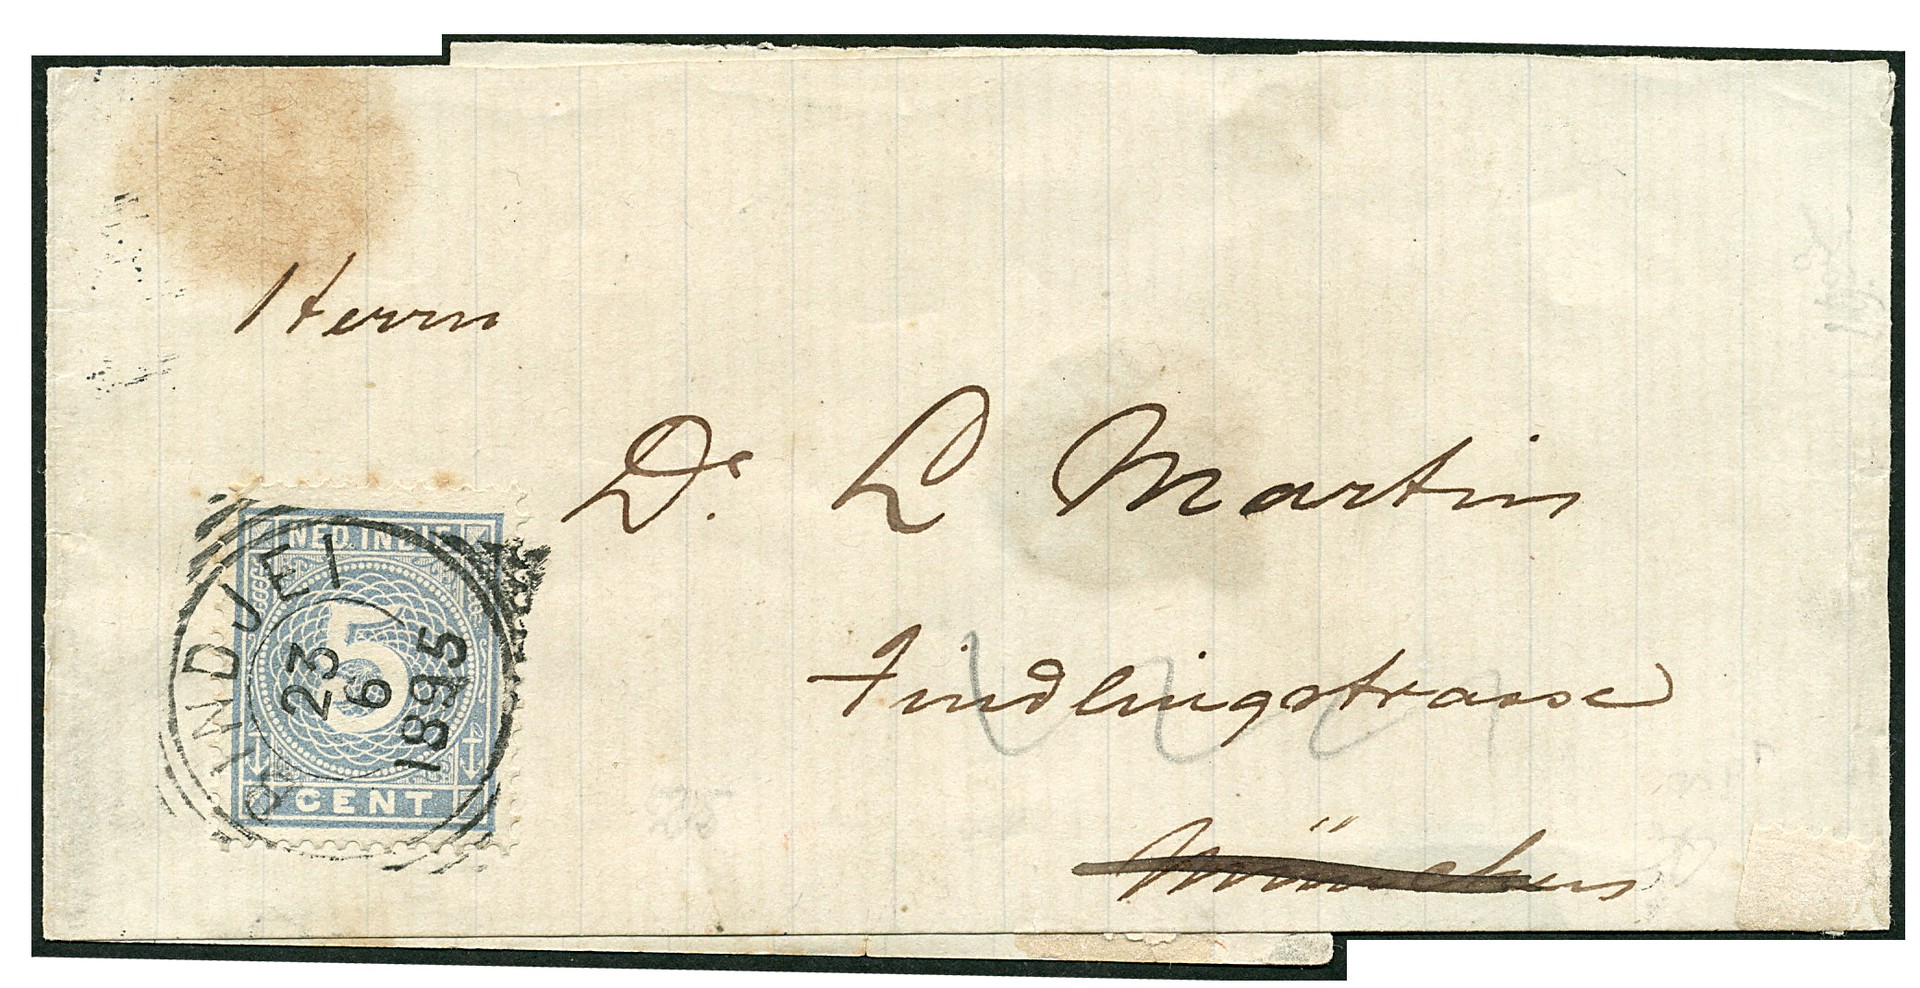 Herrn
Dr. L Martin
Findlingstrasse
München
NED. INDIE
5
CENT
BINDJEI
23
6
1895